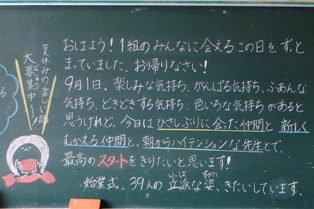 おはよう！1組のみんなに会えるこの日をずっと
まっていました。お帰りなさい！
9月1日。楽しみな気持ち、がんばる気持ち、ふあんな
気持ち、どきどきする気持ち、色いろな気持ちがあると
思うけれど、今日はひさしぶりに会った仲間と新しく
むかえる仲間と、朝からハイテンションな先生とで、
最高のスタートをきりたいと思います！
始業式、39人の立派な姿、きたいしています。
りっぱ すがた
夏休みの楽しい
大募集中！